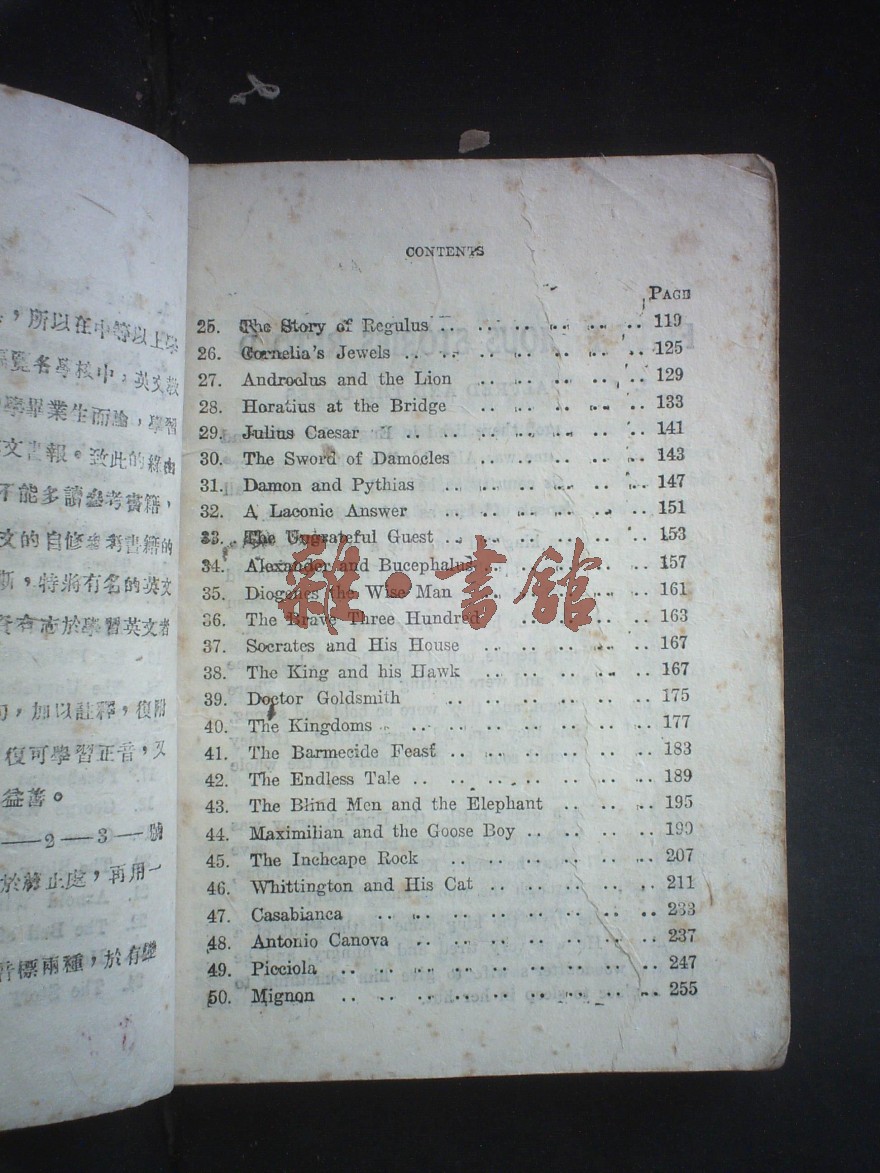 ，所以在中等以上學
覽各學校中，英文教
學畢業生而論，學習
文書報。致此的緣由
不能多讀參考書籍，
文的自修參考書籍的
斯，特將有名的英文
資有志於學習英文者
句，加以註釋，復附
復可學習正音，又
益善。
—2—3—號
於終止處，再用一
音標兩種，於有
CONTENTS
PAGE
25. The Story of Regulus .. .. .. .. .. .. .. .. 119
26. Cornelia's Jewels .. .. .. .. .. .. .. .. .. 125
27. Androclus and the Lion .. .. .. .. .. .. .. 129
28. Horatius at the Bridge .. .. .. .. .. .. .. 133
29. Julius Caesar .. .. .. .. .. .. .. .. .. 141
30. The Sword of Damocles .. .. .. .. .. .. .. 143
31. Damon and Pythias .. .. .. .. .. .. .. .. 147
32. A Laconic Answer .. .. .. .. .. .. .. .. 151
33. The Ungrateful Guest .. .. .. .. .. .. .. .. 153
34. Alexander and Bucephalus .. .. .. .. .. .. .. 157
35. Diogenes the Wise Man .. .. .. .. .. .. .. 161
36. The Brave Three Hundred .. .. .. .. .. .. 163
37. Socrates and His House .. .. .. .. .. .. .. 167
38. The King and his Hawk .. .. .. .. .. .. .. 167
39. Doctor Goldsmith .. .. .. .. .. .. .. .. 175
40. The Kingdoms .. .. .. .. .. .. .. .. .. .. 177
41. The Barmecide Feast .. .. .. .. .. .. .. .. 183
42. The Endless Tale .. .. .. .. .. .. .. .. .. 189
43. The Blind Men and the Elephant .. .. .. .. 195
44. Maximilian and the Goose Boy .. .. .. .. .. 199
45. The Inchcape Rock .. .. .. .. .. .. .. .. 207
46. Whittington and His Cat .. .. .. .. .. .. 211
47. Casabianca .. .. .. .. .. .. .. .. .. .. 233
48. Antonio Canova .. .. .. .. .. .. .. .. .. 237
49. Picciola .. .. .. .. .. .. .. .. .. .. .. .. 247
50. Mignon .. .. .. .. .. .. .. .. .. .. .. .. 255
雜·書館